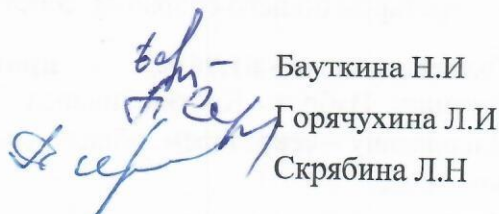 Бауткина Н.И
Горячухина Л.И
Скрябина Л.Н